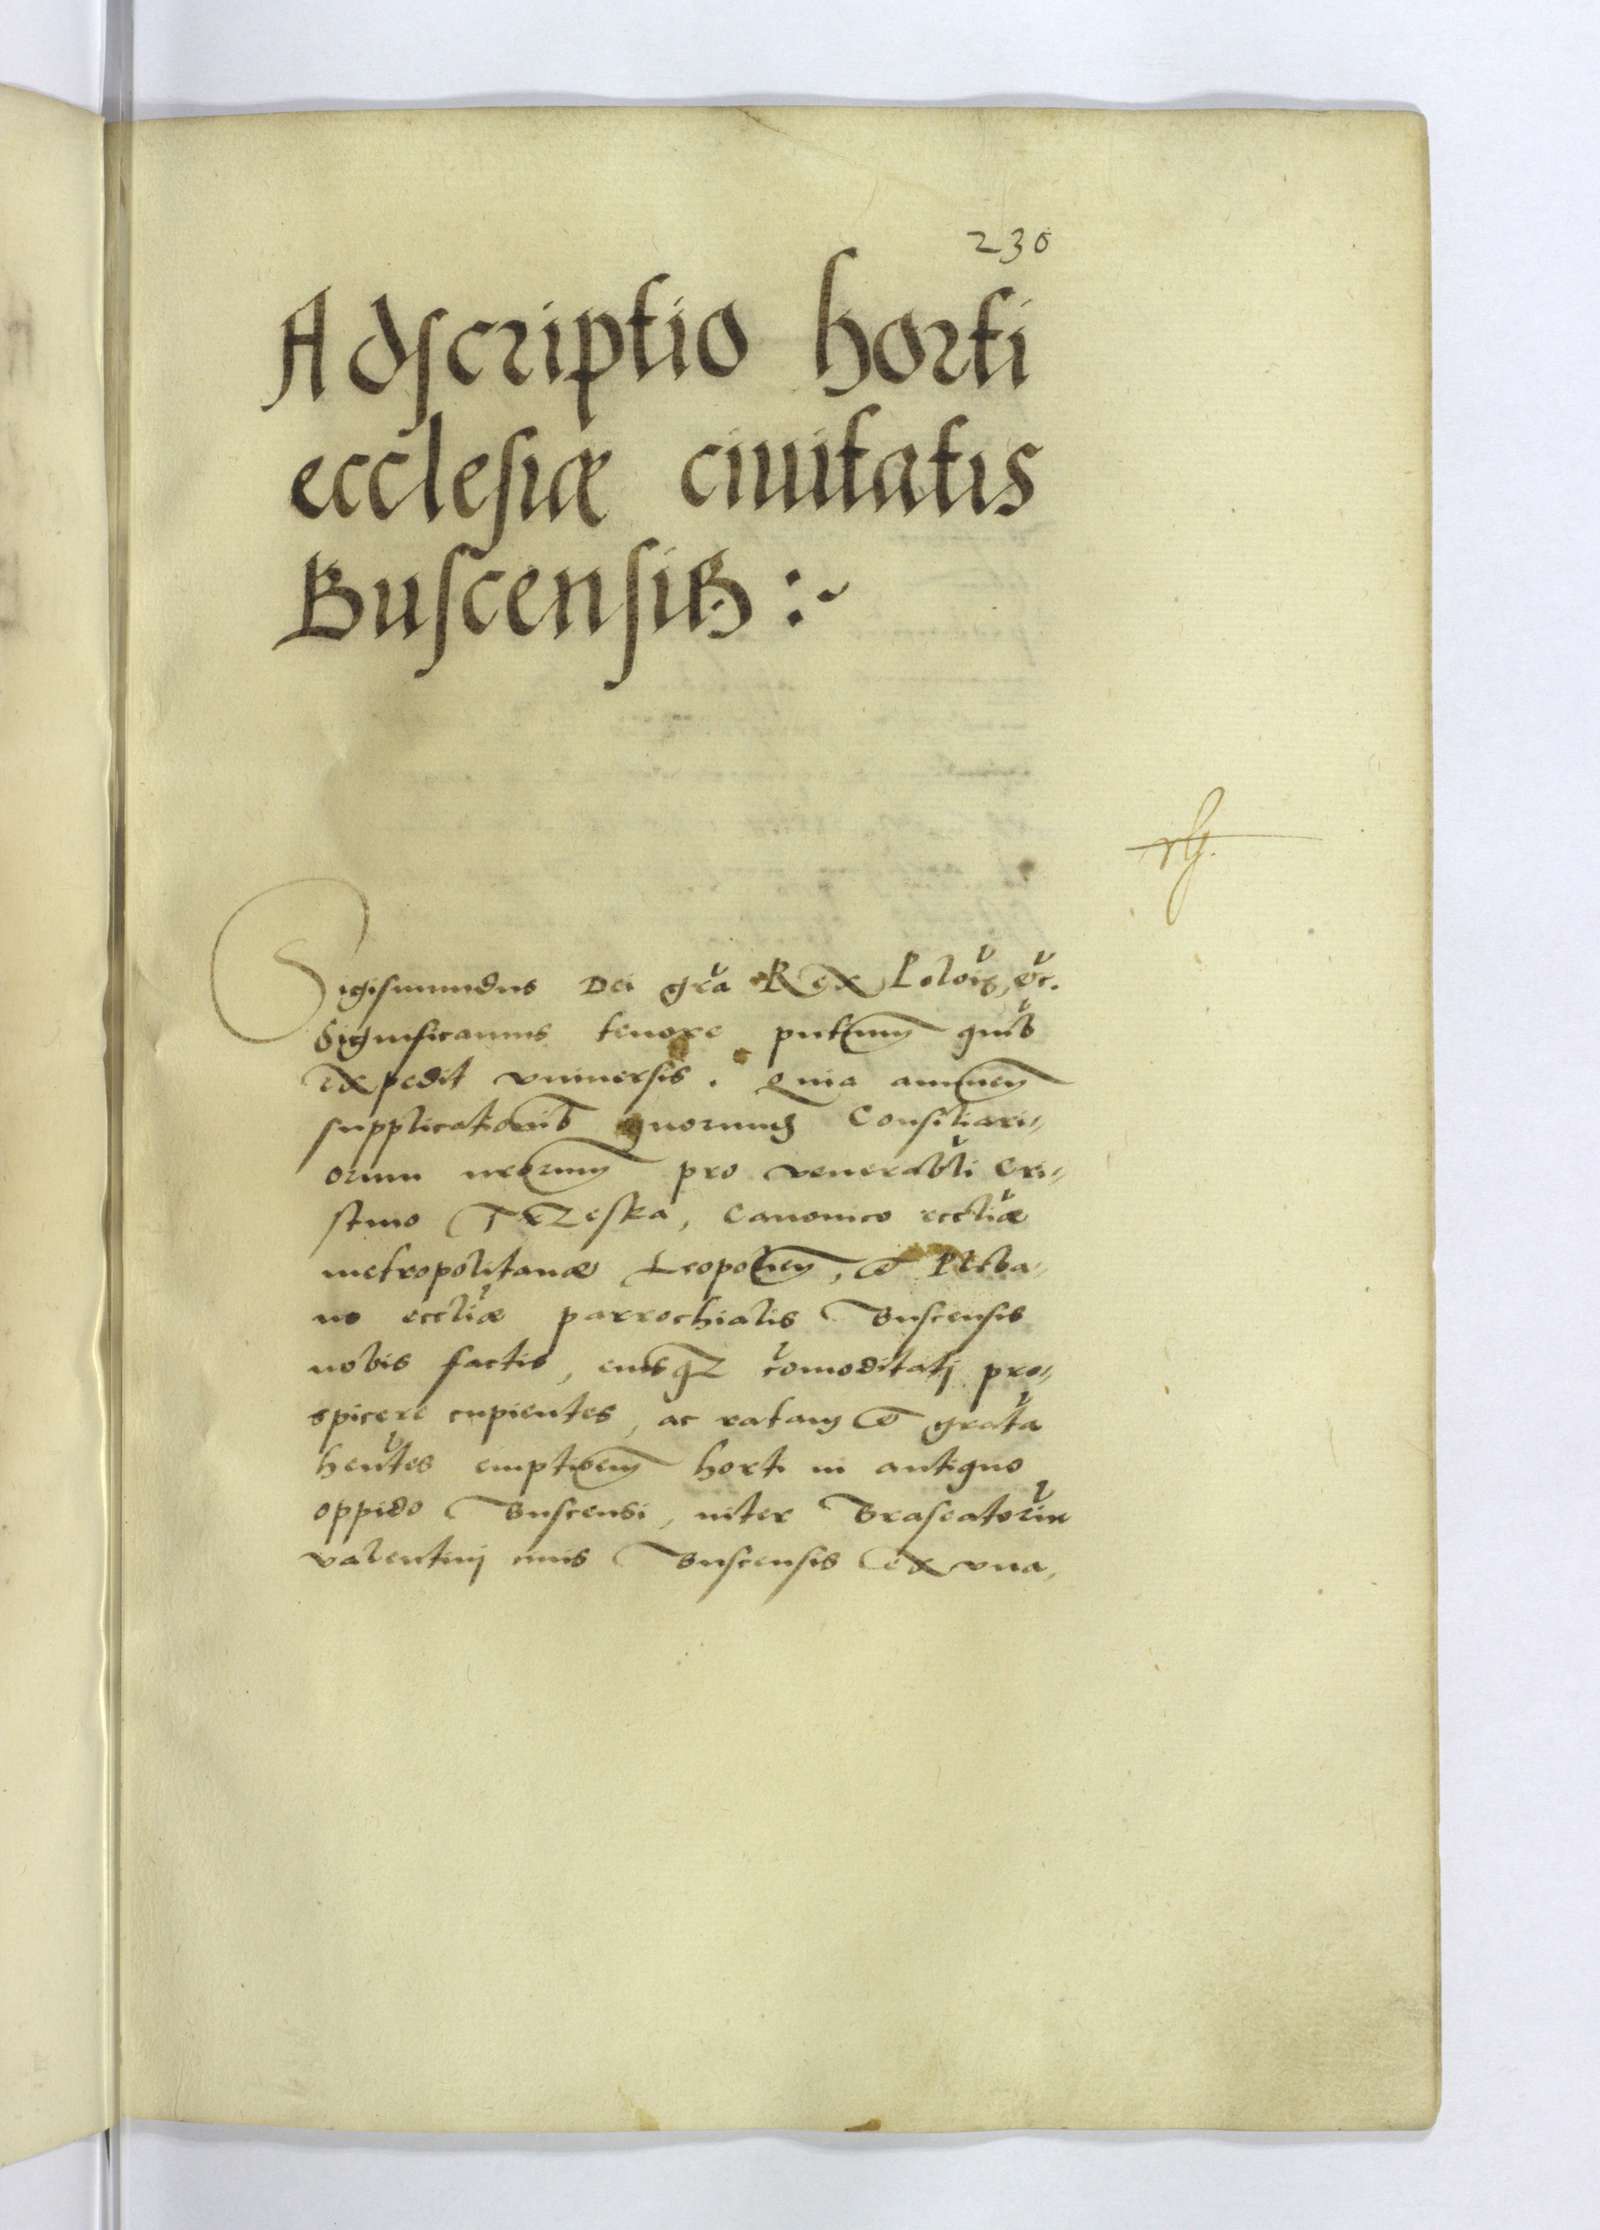 230
Adscriptio horti
ecclesiæ ciuitatis
Buscensis :~
Sigismundus Dei gra Rex Polon, etc.
Significamus tenore pntium quib
Expedit vniuersis. Quia annuen
supplicationib quorum Consiliari=
orum nrorum pro venerabli Cri=
stino Trzeska, Canonico eccliæ
metropolitanæ Leopolien, et Pleba=
no eccliæ parrochialis Buscensis
nobis factis, eiusqz comoditati pro=
spicere cupientes, ac ratam et grata
hentes emptionem horti in antiquo
oppido Buscensi, inter Braseatorium
Valentinj ciuis Buscensis ex vna,